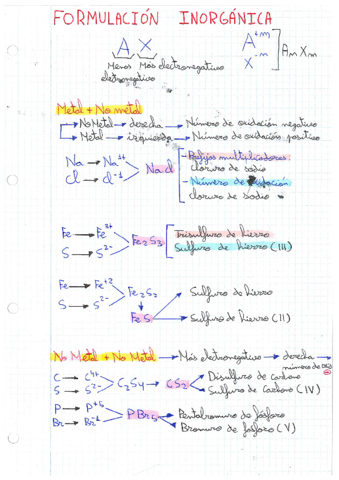 FORMULACIÓN INORGÁNICA
A X
Menos electronegativo Más electronegativo
A+m
X-m
Am Xm
Metal + No metal
No Metal → derecha → Número de oxidación negativo
Metal → izquierda → Número de oxidación positivo
Na → Na1+
Cl → Cl-1
NaCl
- Prefijos multiplicadores:
cloruro de sodio
- Número de oxidación
cloruro de sodio
Fe → Fe3+
S → S2-
Fe2S3
Trisulfuro de hierro
Sulfuro de hierro (III)
Fe → Fe+2
S → S2-
Fe2S2
FeS
Sulfuro de hierro
Sulfuro de hierro (II)
No Metal + No Metal → Más electronegativo → derecha
número de oxi
C → C4+
S → S2-
C2S4 → CS2
Disulfuro de carbono
Sulfuro de Carbono (IV)
P → P+5
Br → Br-1
PBr5
Pentabromuro de fósforo
Bromuro de fósforo (V)